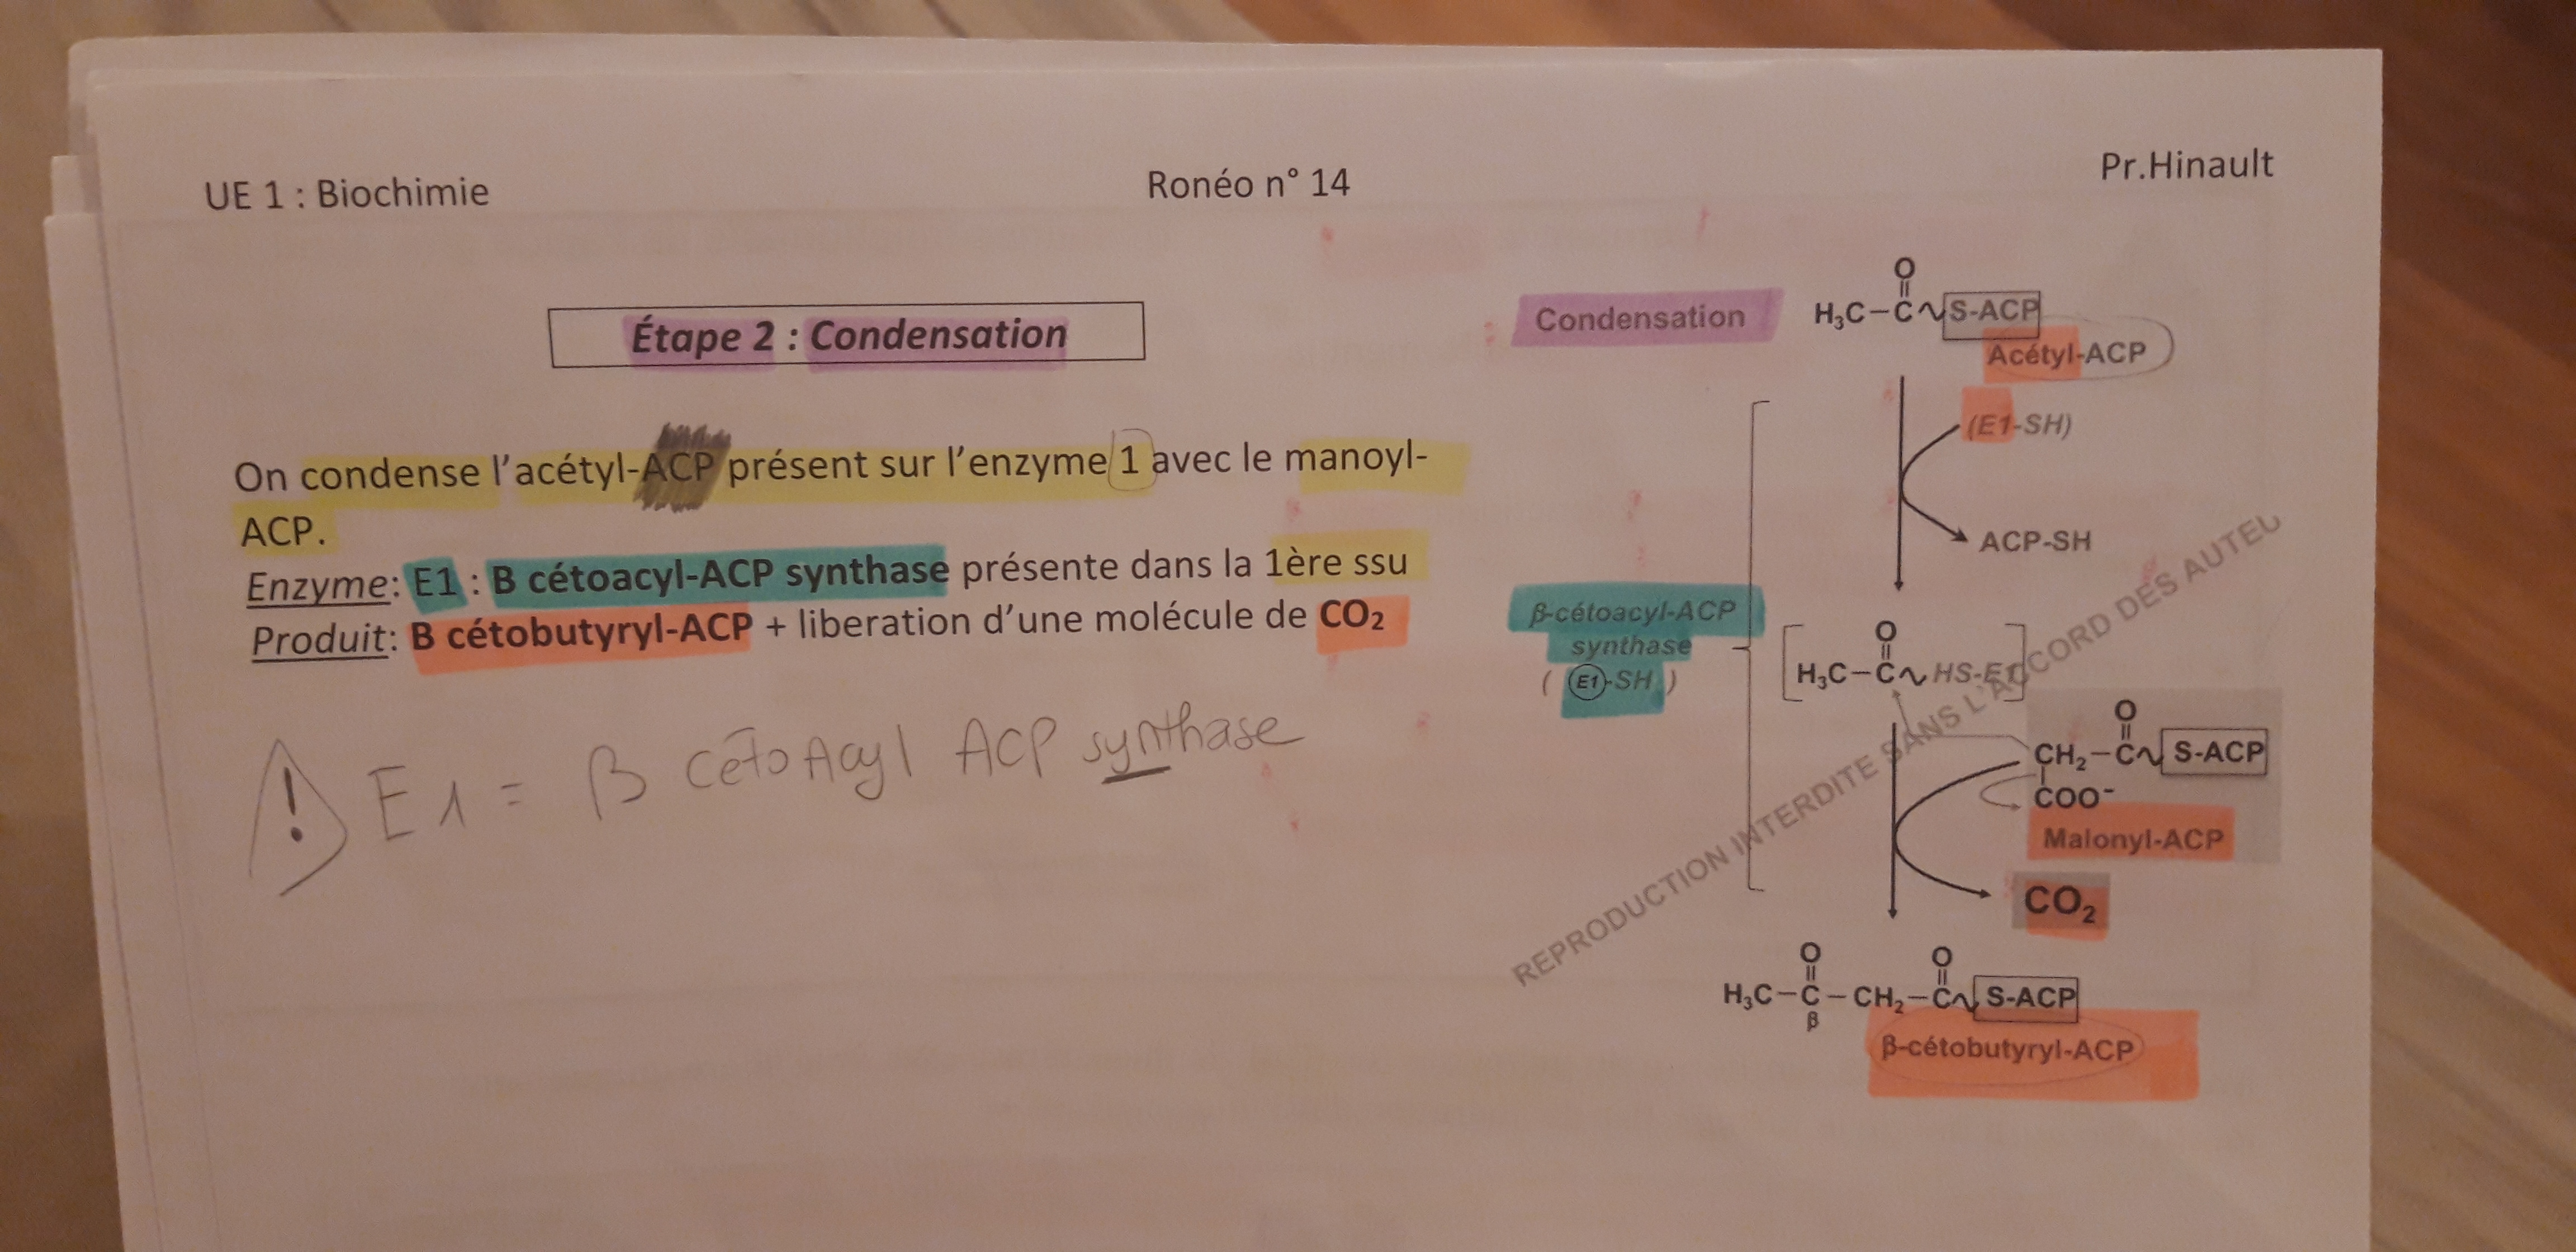 UE 1 : Biochimie
Ronéo n° 14
Pr.Hinault
Étape 2 : Condensation
On condense l'acétyl-ACP présent sur l'enzyme 1 avec le manoyl-
ACP.
Enzyme: E1 : B cétoacyl-ACP synthase présente dans la 1ère ssu
Produit: B cétobutyryl-ACP + liberation d'une molécule de CO₂
! E1 = β cétoAcyl ACP synthase
Condensation
O
H₃C–C~S-ACP
Acétyl-ACP
(E1-SH)
ACP-SH
β-cétoacyl-ACP
synthase
(E1-SH)
O
[H₃C–C~HS-E1]
O
CH₂–C~S-ACP
COO⁻
Malonyl-ACP
CO₂
O O
H₃C–C–CH₂–C~S-ACP
β
β-cétobutyryl-ACP
REPRODUCTION INTERDITE SANS L'ACCORD DES AUTEU